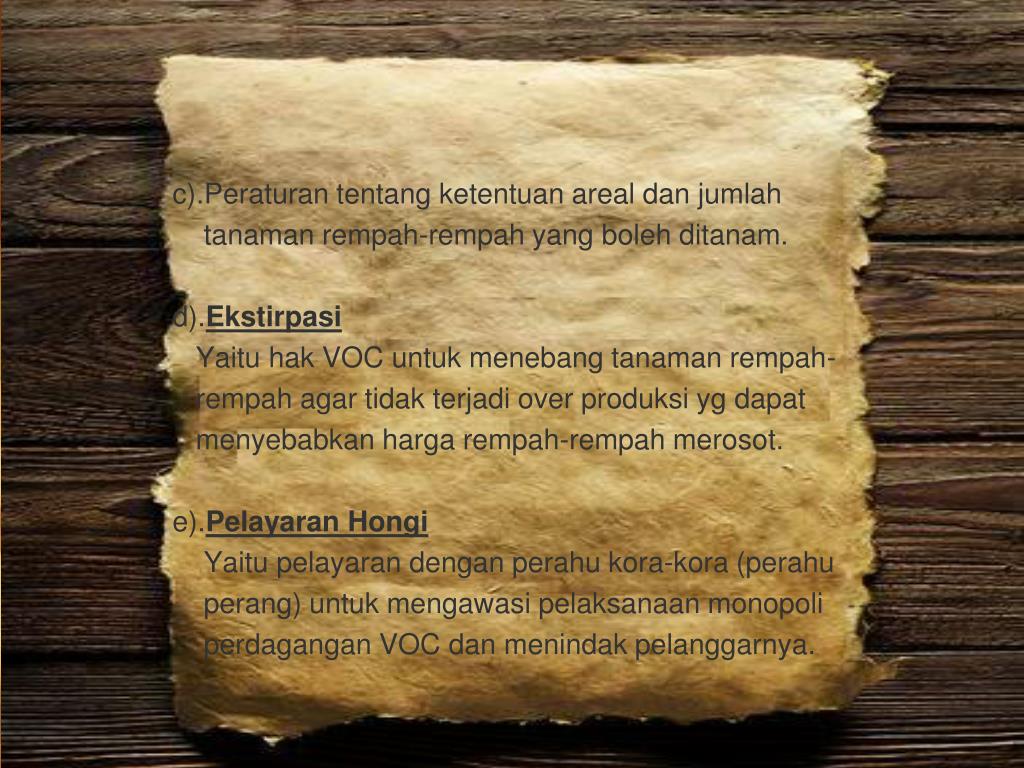 c).Peraturan tentang ketentuan areal dan jumlah
tanaman rempah-rempah yang boleh ditanam.
d).Ekstirpasi
Yaitu hak VOC untuk menebang tanaman rempah-
rempah agar tidak terjadi over produksi yg dapat
menyebabkan harga rempah-rempah merosot.
e).Pelayaran Hongi
Yaitu pelayaran dengan perahu kora-kora (perahu
perang) untuk mengawasi pelaksanaan monopoli
perdagangan VOC dan menindak pelanggarnya.